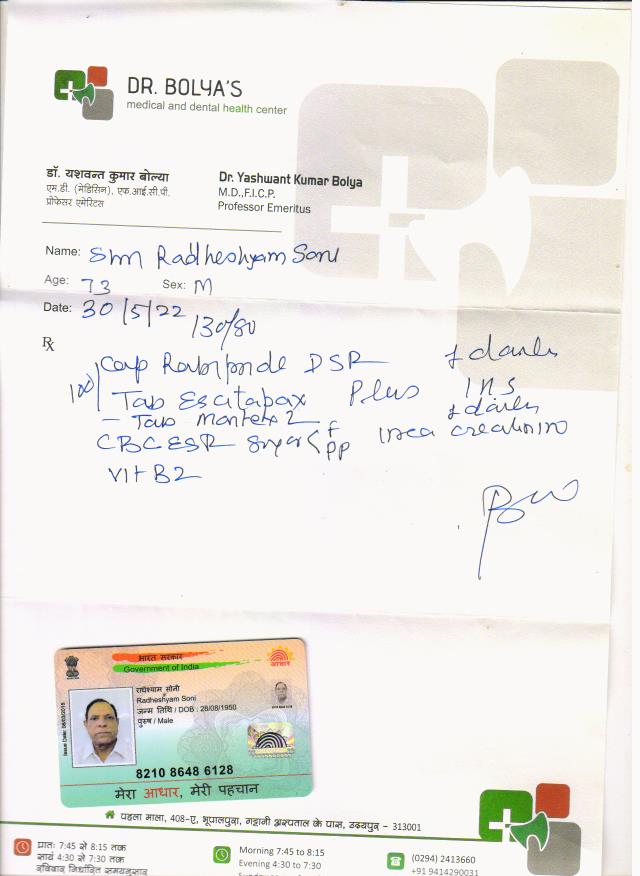 DR. BOLYA'S
medical and dental health center
डॉ. यशवन्त कुमार बोल्या
एम.डी. (मेडिसिन), एफ.आई.सी.पी.
प्रोफेसर एमेरिटस
Dr. Yashwant Kumar Bolya
M.D.,F.I.C.P.
Professor Emeritus
Name: Shri Radheshyam Soni
Age: 73 Sex: M
Date: 30/5/22
130/80
Rx
Cap DSR
Tab Plus
Tab
CBC ESR
Vit B2
भारत सरकार
Government of India
राधेश्याम सोनी
Radheshyam Soni
जन्म तिथि / DOB : 28/08/1950
पुरुष / Male
आधार
8210 8648 6128
मेरा आधार, मेरी पहचान
पहला माला, 408-ए, भूपालपुरा, गट्टानी अस्पताल के पास, उदयपुर - 313001
प्रातः 7:45 से 8:15 तक
सायं 4:30 से 7:30 तक
Morning 7:45 to 8:15
Evening 4:30 to 7:30
(0294) 2413660
+91 9414290031